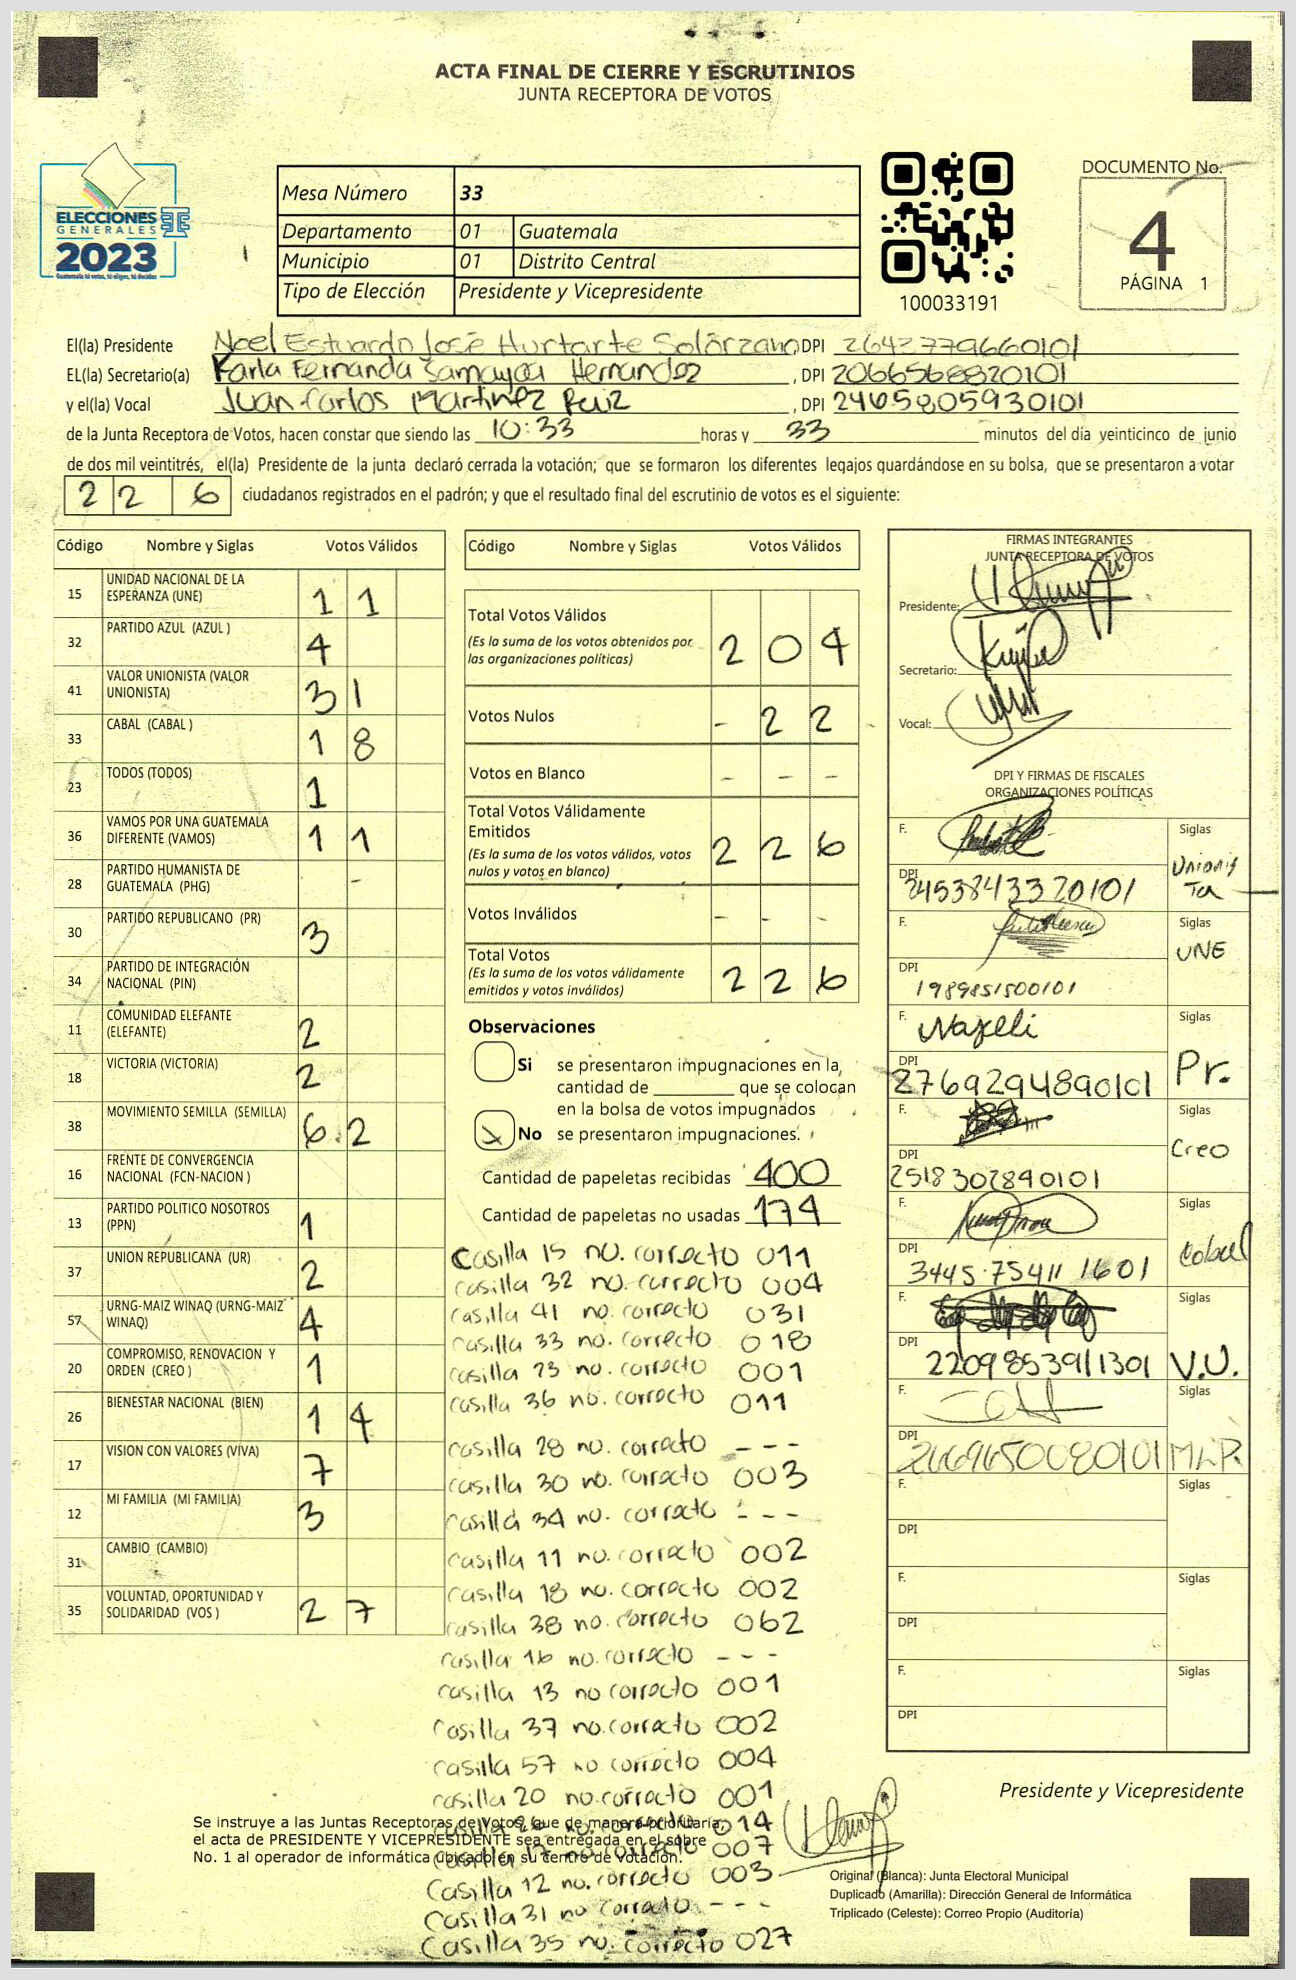 ACTA FINAL DE CIERRE Y ESCRUTINIOS
JUNTA RECEPTORA DE VOTOS
ELECCIONES
GENERALES
2023
Mesa Número 33
Departamento 01 Guatemala
Municipio 01 Distrito Central
Tipo de Elección Presidente y Vicepresidente
100033191
DOCUMENTO No.
4
PÁGINA 1
El(la) Presidente Noel Estuardo José Hurtarte Solórzano, DPI 2642779660101
EL(la) Secretario(a) Karla Fernanda Samayoa Hernandez, DPI 2066568820101
y el(la) Vocal Juan Carlos Martinez Ruiz, DPI 2465805930101
de la Junta Receptora de Votos, hacen constar que siendo las 10:33 horas y 33 minutos del día veinticinco de junio
de dos mil veintitrés, el(la) Presidente de la junta declaró cerrada la votación; que se formaron los diferentes legajos quardándose en su bolsa, que se presentaron a votar
226 ciudadanos registrados en el padrón; y que el resultado final del escrutinio de votos es el siguiente:
Código Nombre y Siglas Votos Válidos
15 UNIDAD NACIONAL DE LA ESPERANZA (UNE) 11
32 PARTIDO AZUL (AZUL ) 4
41 VALOR UNIONISTA (VALOR UNIONISTA) 31
33 CABAL (CABAL ) 18
23 TODOS (TODOS) 1
36 VAMOS POR UNA GUATEMALA DIFERENTE (VAMOS) 11
28 PARTIDO HUMANISTA DE GUATEMALA (PHG) -
30 PARTIDO REPUBLICANO (PR) 3
34 PARTIDO DE INTEGRACIÓN NACIONAL (PIN)
11 COMUNIDAD ELEFANTE (ELEFANTE) 2
18 VICTORIA (VICTORIA) 2
38 MOVIMIENTO SEMILLA (SEMILLA) 62
16 FRENTE DE CONVERGENCIA NACIONAL (FCN-NACION )
13 PARTIDO POLITICO NOSOTROS (PPN) 1
37 UNION REPUBLICANA (UR) 2
57 URNG-MAIZ WINAQ (URNG-MAIZ WINAQ) 4
20 COMPROMISO, RENOVACION Y ORDEN (CREO ) 1
26 BIENESTAR NACIONAL (BIEN) 14
17 VISION CON VALORES (VIVA) 7
12 MI FAMILIA (MI FAMILIA) 3
31 CAMBIO (CAMBIO)
35 VOLUNTAD, OPORTUNIDAD Y SOLIDARIDAD (VOS ) 27
Código Nombre y Siglas Votos Válidos
Total Votos Válidos 204
(Es la suma de los votos obtenidos por
las organizaciones políticas)
Votos Nulos - 22
Votos en Blanco - - -
Total Votos Válidamente
Emitidos 226
(Es la suma de los votos válidos, votos
nulos y votos en blanco)
Votos Inválidos - - -
Total Votos 226
(Es la suma de los votos válidamente
emitidos y votos inválidos)
Observaciones
Si se presentaron impugnaciones en la
cantidad de ________ que se colocan
en la bolsa de votos impugnados
No se presentaron impugnaciones.
Cantidad de papeletas recibidas 400
Cantidad de papeletas no usadas 174
Casilla 15 no. correcto 011
casilla 32 no. correcto 004
casilla 41 no. correcto 031
casilla 33 no. correcto 018
casilla 23 no. correcto 001
casilla 36 no. correcto 011
casilla 28 no. correcto - - -
casilla 30 no. correcto 003
casilla 34 no. correcto - - -
casilla 11 no. correcto 002
casilla 18 no. correcto 002
casilla 38 no. correcto 062
casilla 16 no. correcto - - -
casilla 13 no correcto 001
casilla 37 no. correcto 002
casilla 57 no correcto 004
casilla 20 no. correcto 001
casilla 26 no. correcto 014
casilla 17 no. correcto 007
Casilla 12 no. correcto 003
Casilla 31 no correcto - - -
Casilla 35 no. correcto 027
FIRMAS INTEGRANTES
JUNTA RECEPTORA DE VOTOS
Presidente:
Secretario:
Vocal:
DPI Y FIRMAS DE FISCALES
ORGANIZACIONES POLÍTICAS
F. Siglas Unionis
DPI 2453843320101 Ta
F. Siglas UNE
DPI 1989851500101
F. Nayelli Siglas Pr.
DPI 2769294890101
F. Siglas Creo
DPI 2518302890101
F. Siglas
DPI 3445 75411 1601
F. Siglas V.U.
DPI 2209853911301
F. Siglas
DPI 2669650080101
F. Siglas
DPI
F. Siglas
DPI
F. Siglas
DPI
Presidente y Vicepresidente
Se instruye a las Juntas Receptoras de Votos, que de manera prioritaria,
el acta de PRESIDENTE Y VICEPRESIDENTE sea entregada en el sobre
No. 1 al operador de informática ubicado en su centro de votación.
Original (Blanca): Junta Electoral Municipal
Duplicado (Amarilla): Dirección General de Informática
Triplicado (Celeste): Correo Propio (Auditoría)